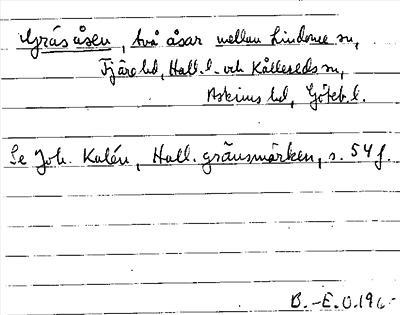 Gråsåsen, två åsar mellan Lindome sn,
Fjäre hd, Hall. l. och Kållereds sn,
Askims hd, Göteb. l.
Se Joh. Kalén, Hall. gränsmärken, s. 54 f.
B.-E. O. 196